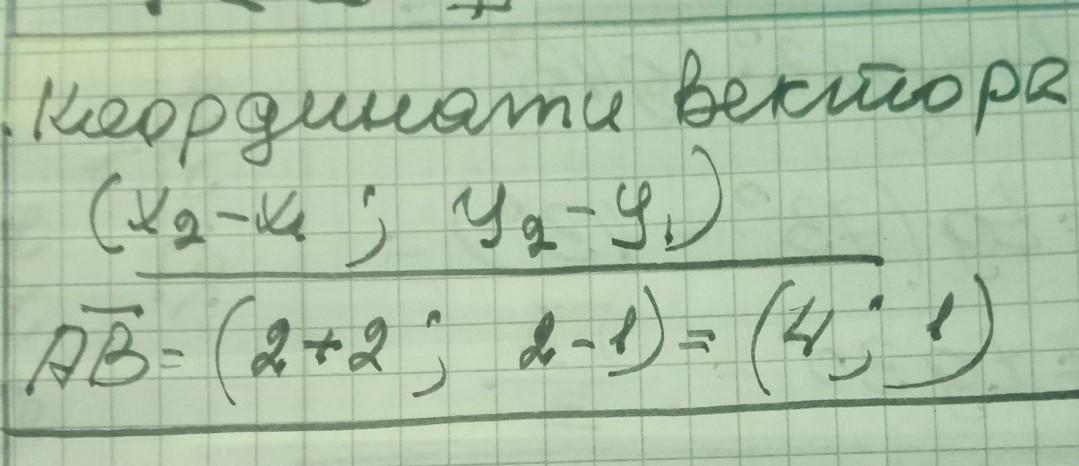 Координати вектора
(x₂-x₁ ; y₂-y₁)
AB̅ = (2+2 ; 2-1) = (4 ; 1)